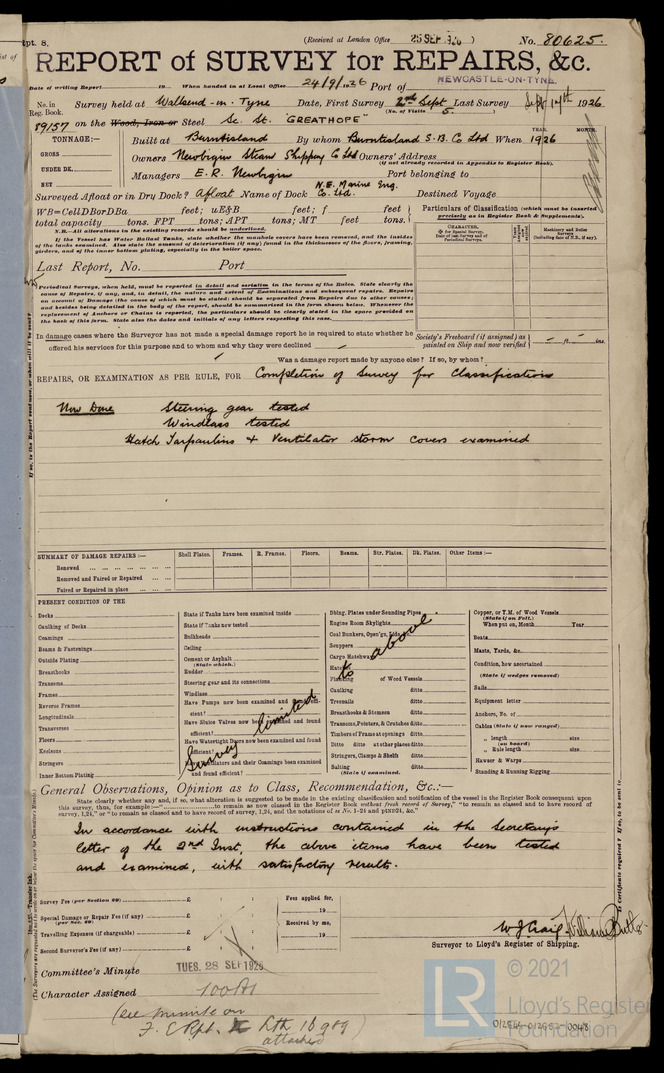 Rpt. 8.
(Received at London Office 25 SEP 1926 )
No. 80625.
REPORT of SURVEY for REPAIRS, &c.
Date of writing Report 19 When handed in at Local Office 24/9/1926 Port of NEWCASTLE-ON-TYNE.
No. in Reg. Book. Survey held at Wallsend-on-Tyne Date, First Survey 2nd Sept Last Survey Sept 17th 1926
(No. of Visits 5.
89157 on the Wood, Iron or Steel Sc. St. "GREATHOPE"
TONNAGE:—
GROSS
UNDER DK.
NET
Built at Burntisland By whom Burntisland S.B. Co Ltd When 1926
YEAR. MONTH.
Owners Newbigin Steam Shipping Co Ltd Owners' Address
(if not already recorded in Appendix to Register Book).
Managers E.R. Newbigin Port belonging to
Surveyed Afloat or in Dry Dock? Afloat Name of Dock N.E. Marine Eng. Co. Ltd. Destined Voyage
WB=CellDBorDBa feet; uE&B feet; f feet
total capacity tons. FPT tons; APT tons; MT feet tons.
N.B.—All alterations in the existing records should be underlined.
If the Vessel has Water Ballast Tanks, state whether the manhole covers have been removed, and the insides
of the tanks examined. Also state the amount of deterioration (if any) found in the thicknesses of the floors, framing,
girders, and of the inner bottom plating, especially in the boiler space.
Particulars of Classification (which must be inserted
precisely as in Register Book & Supplements).
CHARACTER,
Last Report, No. Port
Periodical Surveys, when held, must be reported in detail and seriatim in the terms of the Rules. State clearly the
cause of Repairs, if any, and, in detail, the nature and extent of Examinations and subsequent repairs. Repairs
on account of Damage (the cause of which must be stated) should be separated from Repairs due to other causes;
and besides being detailed in the body of the report, should be summarized in the form shown below. Whenever the
replacement of Anchors or Chains is reported, the particulars should be clearly stated in the space provided on
the back of this form. State also the dates and initials of any letters respecting this case.
In damage cases where the Surveyor has not made a special damage report he is required to state whether he
offered his services for this purpose and to whom and why they were declined
Society's Freeboard (if assigned) as
painted on Ship and now verified
Was a damage report made by anyone else? If so, by whom?
REPAIRS, OR EXAMINATION AS PER RULE, FOR Completion of Survey for Classification
Now Done Steering gear tested
Windlass tested
Hatch Tarpaulins & Ventilator storm covers examined
SUMMARY OF DAMAGE REPAIRS:— Shell Plates. Frames. R. Frames. Floors. Beams. Str. Plates. Dk. Plates. Other Items:—
Renewed
Removed and Faired or Repaired
Faired or Repaired in place
PRESENT CONDITION OF THE
Decks
Caulking of Decks
Coamings
Beams & Fastenings
Outside Plating
Breasthooks
Transoms
Frames
Reverse Frames
Longitudinals
Transverses
Floors
Keelsons
Stringers
Inner Bottom Plating
State if Tanks have been examined inside
State if Tanks now tested
Bulkheads
Ceiling
Cement or Asphalt
(State which.)
Rudder
Steering gear and its connections
Windlass
Have Pumps now been examined and found efficient?
Have Sluice Valves now been examined and found efficient?
Have Watertight Doors now been examined and found efficient?
Ventilators and their Coamings been examined and found efficient?
Survey limited to above
Dblng. Plates under Sounding Pipes
Engine Room Skylights
Coal Bunkers, Open'gs, Lids
Scuppers
Cargo Hatchways
Hatches
Planking of Wood Vessels
Caulking ditto
Treenails ditto
Breasthooks & Stemson ditto
Transoms, Pointers, & Crutches ditto
Timbers of Frame at openings ditto
Ditto ditto at other places ditto
Stringers, Clamps & Shelfs ditto
Salting ditto
(State if examined.
Copper, or Y.M. of Wood Vessels
(State if on Felt.)
When put on, Month Year
Boats
Masts, Yards, &c.
Condition, how ascertained
(State if wedges removed)
Sails
Equipment letter
Anchors, No. of
Cables (State if now ranged)
„ length size
(on board)
„ Rule length size
Hawser & Warps
Standing & Running Rigging
General Observations, Opinion as to Class, Recommendation, &c.:—
State clearly whether any and, if so, what alteration is suggested to be made in the existing classification and notification of the vessel in the Register Book consequent upon
this survey, thus, for example:—" to remain as now classed in the Register Book without fresh record of Survey," "to remain as classed and to have record of
survey, 1,24," or "to remain as classed and to have record of survey, 1,24, and the notations of
In accordance with instructions contained in the Secretary's
letter of the 2nd Inst, the above items have been tested
and examined, with satisfactory results.
Survey Fee (per Section 29) £
Special Damage or Repair Fee (if any) £
(per Sec. 29)
Travelling Expenses (if chargeable) £
Second Surveyor's Fee (if any) £
Fees applied for,
19
Received by me,
19
W J Craig. William Butler
Surveyor to Lloyd's Register of Shipping.
Committee's Minute TUES. 28 SEP 1926
Character Assigned 100A1
(See minute on
F.E. Rpt. Lth 16989)
attached
LR © 2021
Lloyd's Register
Foundation